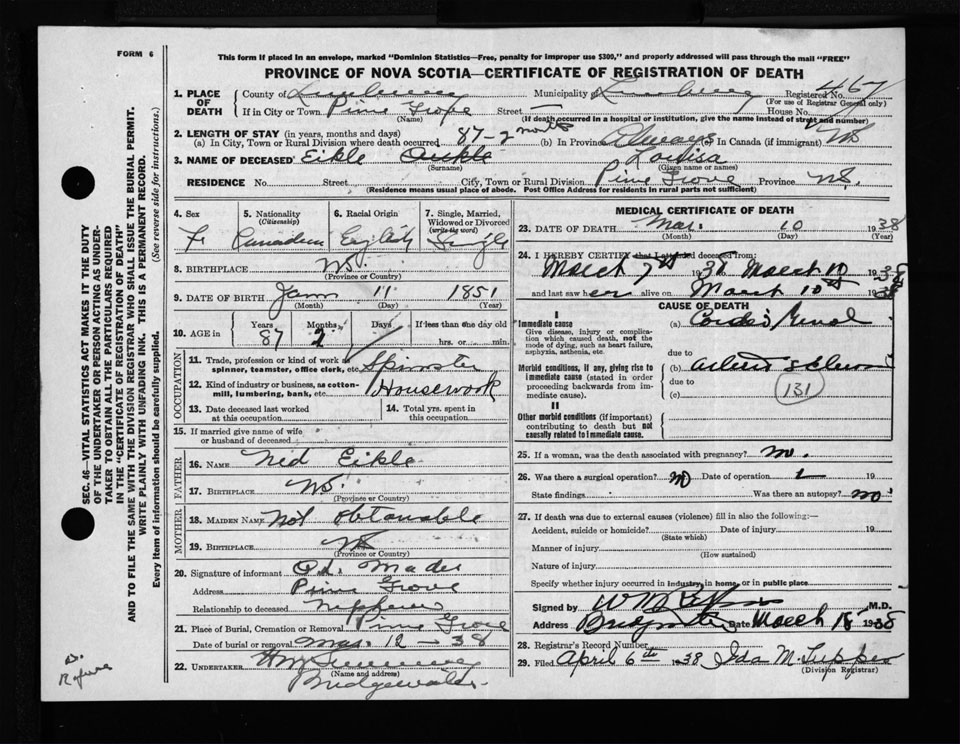 FORM 6
This form if placed in an envelope, marked "Dominion Statistics—Free, penalty for improper use $300," and properly addressed will pass through the mail "FREE"
PROVINCE OF NOVA SCOTIA—CERTIFICATE OF REGISTRATION OF DEATH
1. PLACE OF DEATH
County of Lunenburg Municipality of Lunenburg Registered No.
(For use of Registrar General only)
If in City or Town Pine Grove Street — House No.
(Name) (If death occurred in a hospital or institution, give the name instead of street and number)
2. LENGTH OF STAY (in years, months and days)
(a) In City, Town or Rural Division where death occurred 87-2 months (b) In Province Always (c) In Canada (if immigrant)
3. NAME OF DECEASED Eikle Louisa
(Surname) (Given name or names)
RESIDENCE No. Street City, Town or Rural Division Pine Grove Province N.S.
(Residence means usual place of abode. Post Office Address for residents in rural parts not sufficient)
4. Sex 5. Nationality (Citizenship) 6. Racial Origin 7. Single, Married, Widowed or Divorced (write the word)
F. Canadian English Single
8. BIRTHPLACE N.S.
(Province or Country)
9. DATE OF BIRTH Jan 11 1851
(Month) (Day) (Year)
10. AGE in Years Months Days If less than one day old
87 2 hrs. or min.
OCCUPATION
11. Trade, profession or kind of work as spinner, teamster, office clerk, etc. Spinster
12. Kind of industry or business, as cotton-mill, lumbering, bank, etc. Housework
13. Date deceased last worked at this occupation
14. Total yrs. spent in this occupation
15. If married give name of wife or husband of deceased
FATHER
16. NAME Ned Eikle
17. BIRTHPLACE N.S.
(Province or Country)
MOTHER
18. MAIDEN NAME Not obtainable
19. BIRTHPLACE
(Province or Country)
20. Signature of informant Mader
Address Pine Grove
Relationship to deceased nephew
21. Place of Burial, Cremation or Removal Pine Grove
Date of burial or removal Mar. 12 - 38
22. UNDERTAKER
(Name and address)
Bridgewater
MEDICAL CERTIFICATE OF DEATH
23. DATE OF DEATH Mar. 10 1938
(Month) (Day) (Year)
24. I HEREBY CERTIFY that I attended deceased from:
March 7th 1938 March 10 1938
and last saw her alive on March 10th 1938
CAUSE OF DEATH
I
Immediate cause
Give disease, injury or complication which caused death, not the mode of dying, such as heart failure, asphyxia, asthenia, etc.
(a) Cardio Renal
due to
Morbid conditions, if any, giving rise to immediate cause (stated in order proceeding backwards from immediate cause).
(b)
due to
(c) 131
II
Other morbid conditions (if important) contributing to death but not causally related to immediate cause.
25. If a woman, was the death associated with pregnancy? no.
26. Was there a surgical operation? no Date of operation 19
State findings Was there an autopsy? no
27. If death was due to external causes (violence) fill in also the following:—
Accident, suicide or homicide? Date of injury 19
(State which)
Manner of injury
(How sustained)
Nature of injury
Specify whether injury occurred in industry, in home, or in public place
Signed by M.D.
Address Bridgewater Date March 18 1938
28. Registrar's Record Number
29. Filed April 6th 1938 Ida M. Tupper
(Division Registrar)
SEC. 46—VITAL STATISTICS ACT MAKES IT THE DUTY
OF THE UNDERTAKER OR PERSON ACTING AS UNDER-
TAKER TO OBTAIN ALL THE PARTICULARS REQUIRED
IN THE "CERTIFICATE OF REGISTRATION OF DEATH"
AND TO FILE THE SAME WITH THE DIVISION REGISTRAR WHO SHALL ISSUE THE BURIAL PERMIT.
WRITE PLAINLY WITH UNFADING INK. THIS IS A PERMANENT RECORD.
Every item of information should be carefully supplied. (See reverse side for instructions.)